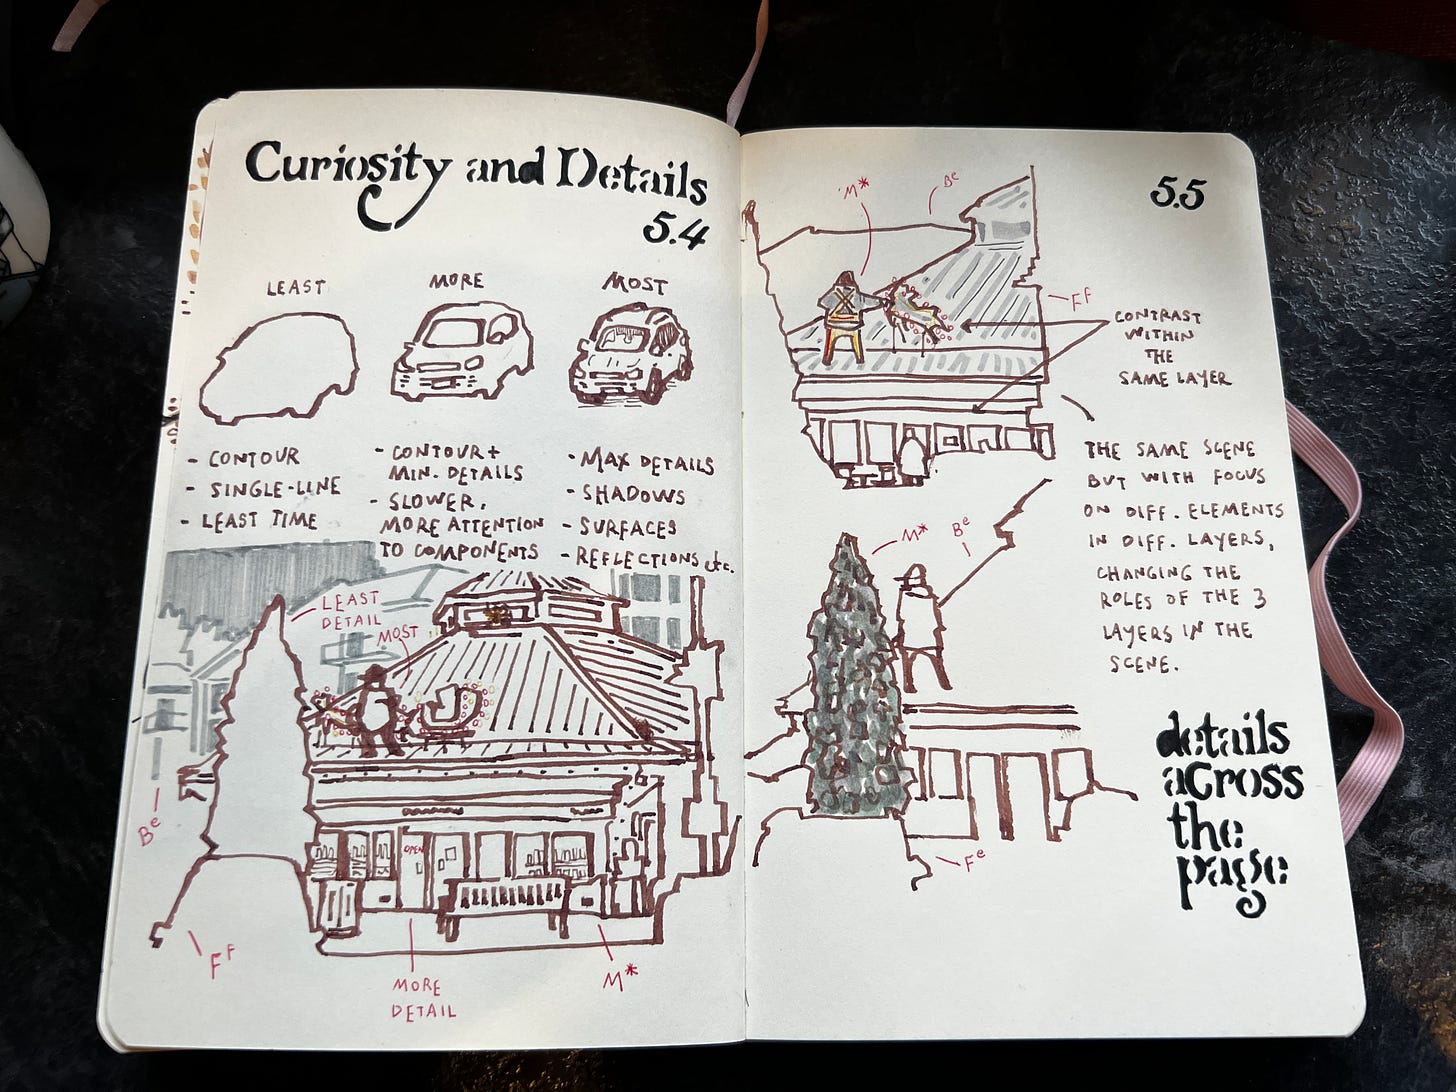 Curiosity and Details
5.4
LEAST
MORE
MOST
- CONTOUR
- SINGLE-LINE
- LEAST TIME
- CONTOUR +
MIN. DETAILS
- SLOWER,
MORE ATTENTION
TO COMPONENTS
- MAX DETAILS
- SHADOWS
- SURFACES
- REFLECTIONS etc.
LEAST
DETAIL
MOST
OPEN
Be
FF
MORE
DETAIL
M*
5.5
M*
Be
FF
CONTRAST
WITHIN
THE
SAME LAYER
THE SAME SCENE
BUT WITH FOCUS
ON DIFF. ELEMENTS
IN DIFF. LAYERS,
CHANGING THE
ROLES OF THE 3
LAYERS IN THE
SCENE.
M*
Be
Fe
details
across
the
page